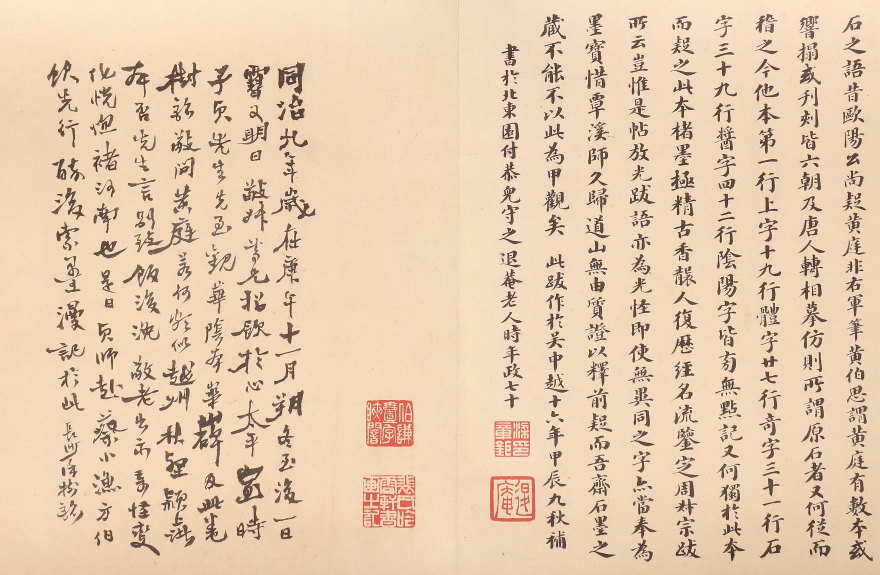 石之語昔歐陽公尚疑黃庭非右軍筆黃伯思謂黃庭有數本或
響搨或刊刻皆六朝及唐人轉相摹仿則所謂原石者又何從而
稽之今他本第一行上字十九行體字廿七行奇字三十一行石
字三十九行醬字四十二行陰陽字皆有無點記又何獨於此本
而疑之此本楮墨極精古香襲人復歷經名流鑒定周草宗跋
所云豈惟是帖放光跋語亦為光怪即使無異同之字亦當奉為
墨寶惜覃溪師久歸道山無由質證以釋前疑而吾齋石墨之
藏不能不以此為甲觀矣 此跋作於吳中越十六年甲辰九秋補
書於北東園付恭兒守之退菴老人時年政七十
同治九年歲在庚午十一月朔冬至後一日
雪又明日 招飲於心太平盦時
子貞先生先至觀華陰本華碑及此卷
樹銘敬問黃庭若何 似越州秋 穎上
本否先生言 飯後沈 老出示 怪變
化恍惚褚河南也是日貞師赴蔡小漁方伯
飲先行 後索 漫記於此 長沙徐樹銘